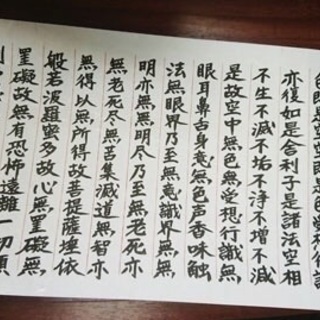 色即是空空即是色受想行識
亦復如是舎利子是諸法空相
不生不滅不垢不浄不増不減
是故空中無色無受想行識無
眼耳鼻舌身意無色声香味触
法無眼界乃至無意識界無無
明亦無無明尽乃至無老死亦
無老死尽無苦集滅道無智亦
無得以無所得故菩提薩埵依
般若波羅蜜多故心無罣礙無
罣礙故無有恐怖遠離一切顛